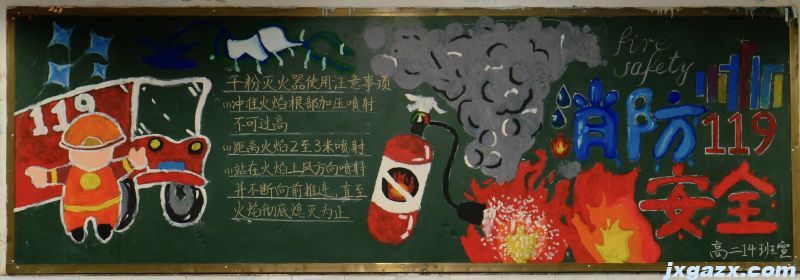 119
干粉灭火器使用注意事项
(1)冲准火焰根部加压喷射
不可过高
(2)距离火焰2至3米喷射
(3)站在火焰上风方向喷射
并不断向前推进,直至
火焰彻底熄灭为止
fire
safety
消防
119
安全
高二14班宣
jxgazx.com